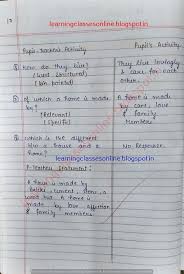 learningclassesonline.blogspot.in
Pupil-Teacher's Activity
Pupil's Activity
① How do they live?
(Well structured)
(Bin pointed)
They live lovingly
& care for each
other.
② Of which a home is made
by?
(Relevant)
(Specific)
A home is made
by care, love
& family
Members
③ Which is the different
b/w a house and a
home?
No Response.
learningclassesonline.blogspot.in
P. Teacher Statement:
A House is made by
Bricks, cement, stone,
wood but A home is
made by love, affection
& family members
learningclassesonline.blogspot.in